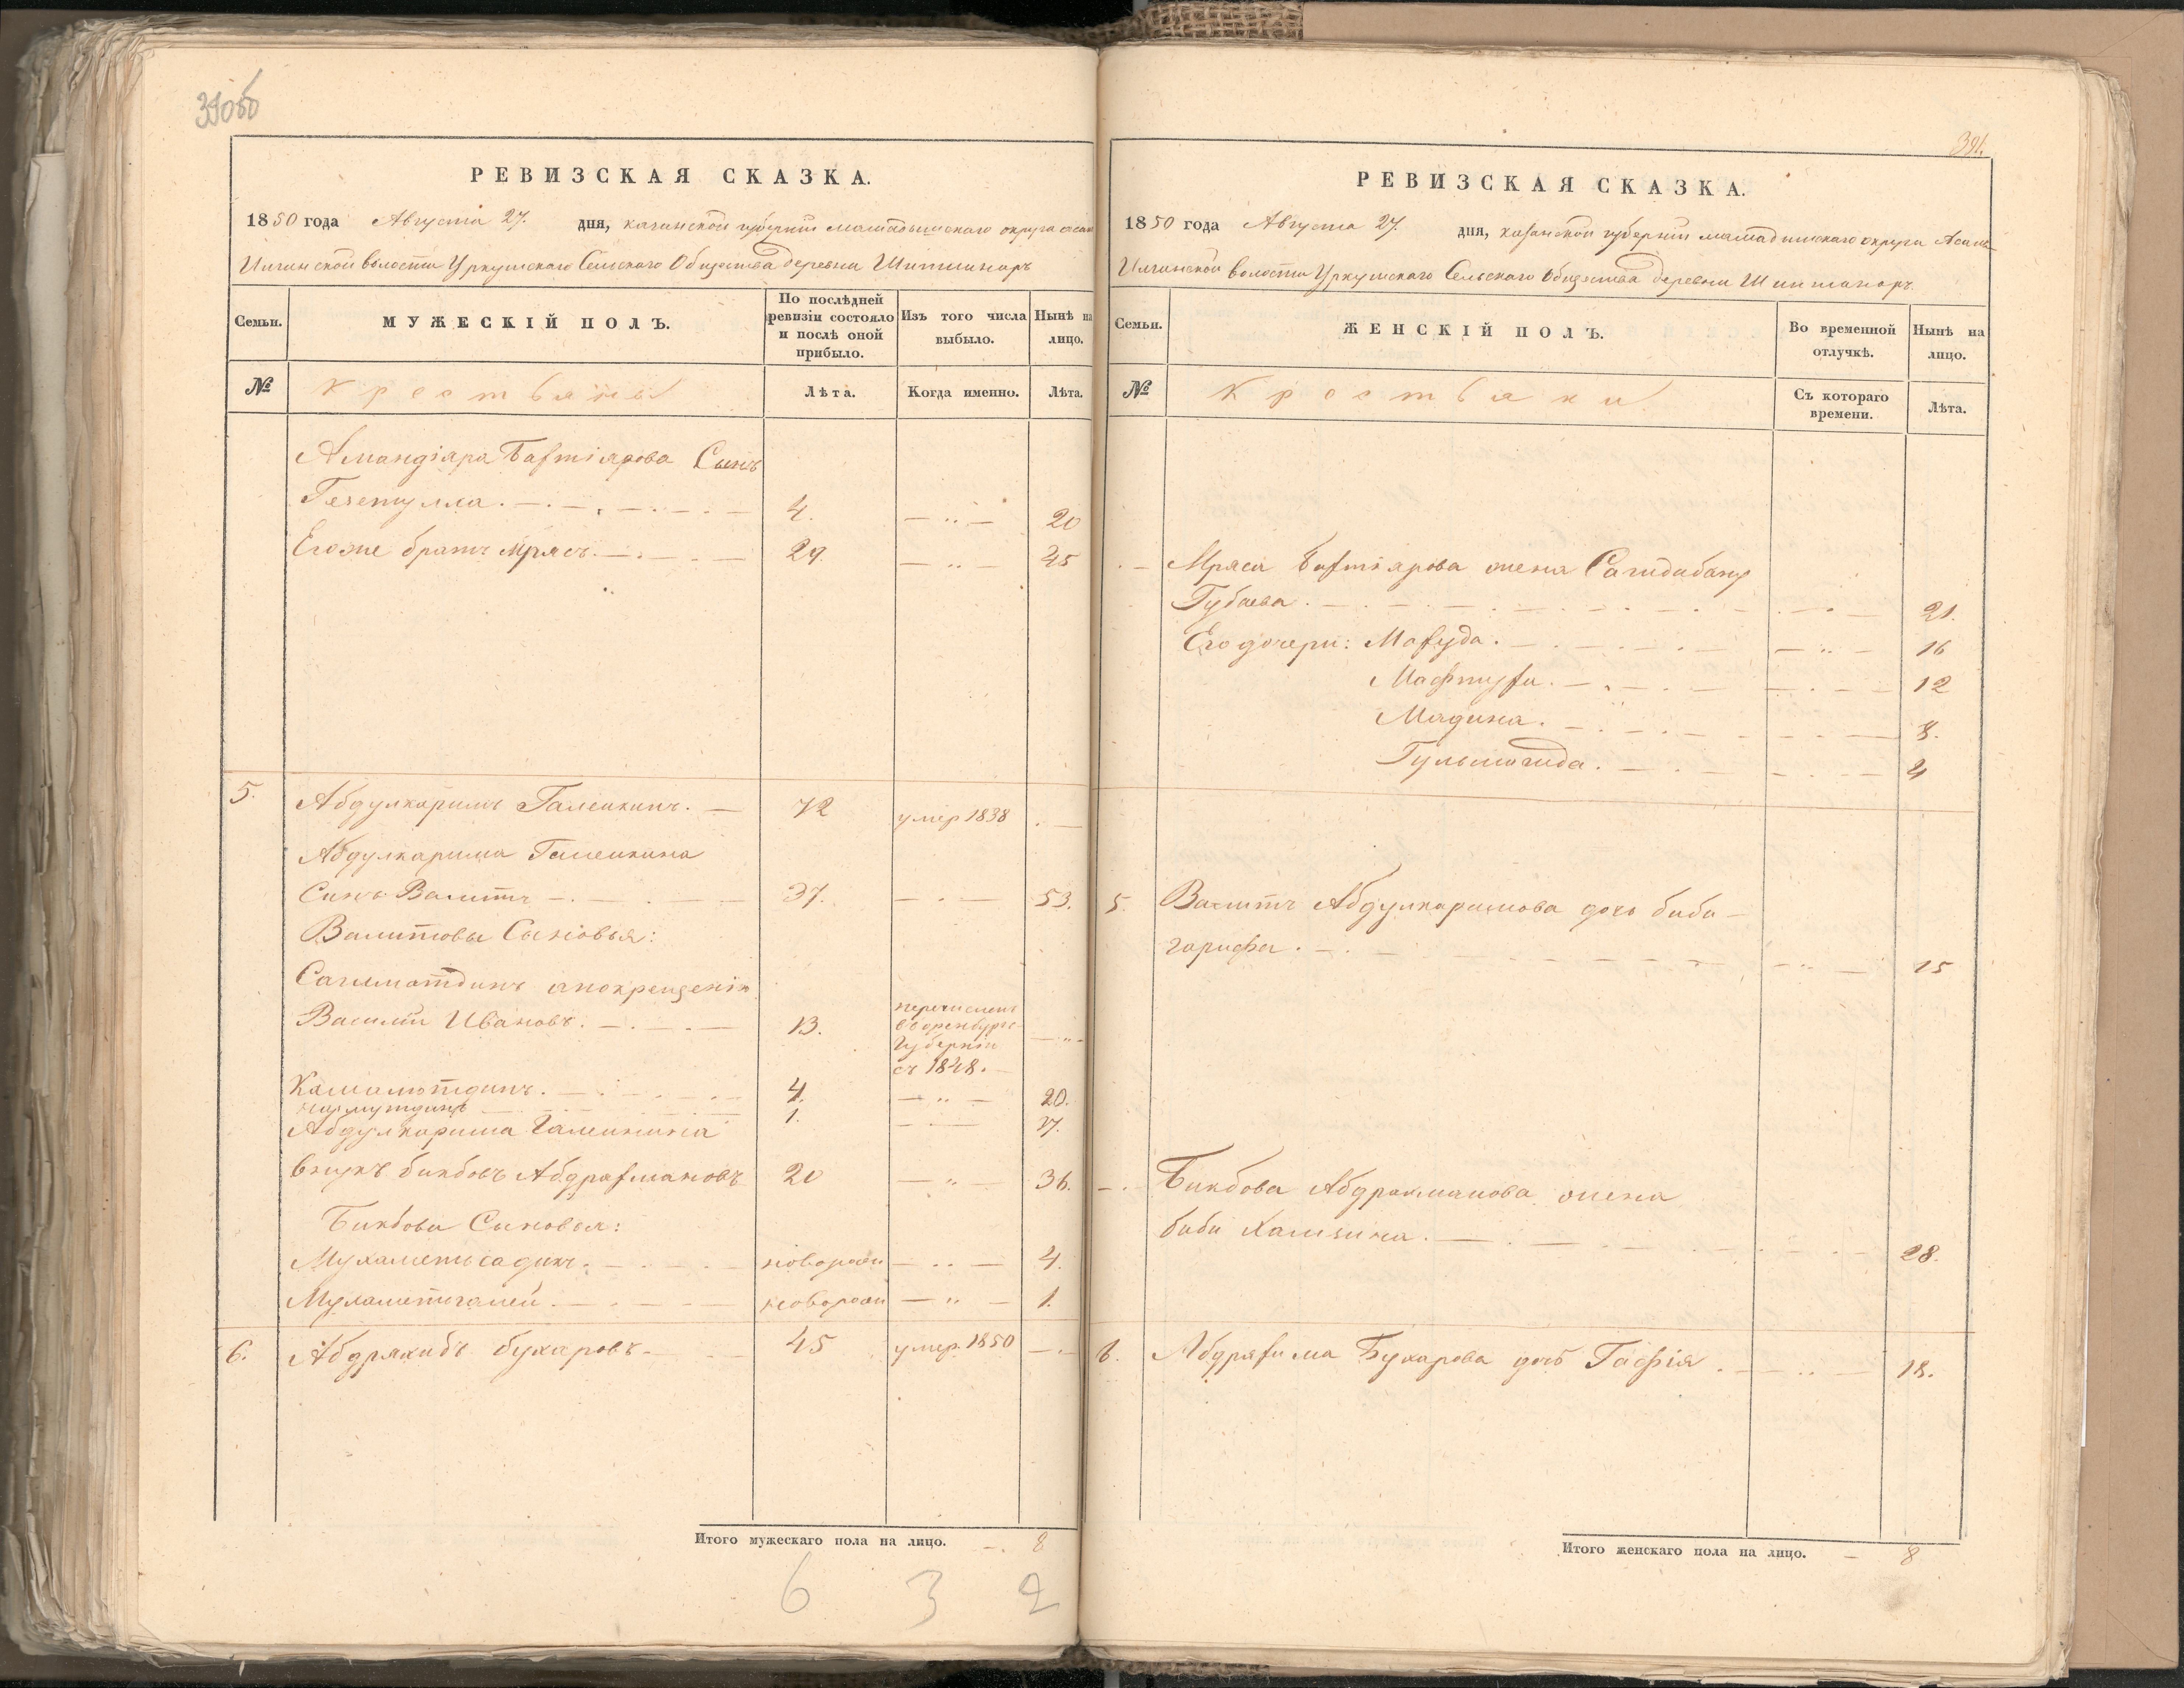 390об
РЕВИЗСКАЯ СКАЗКА.
1850 года Августа 27. дня, казанской губерніи мамадышскаго округа асан
Илгинской волости Уркушскаго Сельскаго Общества деревни Шитшинаръ
Семьи.
МУЖЕСКІЙ ПОЛЪ.
По послѣдней ревизіи состояло и послѣ оной прибыло.
Изъ того числа выбыло.
Нынѣ на лицо.
№
Крестьяне
Лѣта.
Когда именно.
Лѣта.
Амандіяра Бахтіярова Сынъ
Гезетулла. 4. 20
Егоже братъ Мрясъ. 29. 45
5. Абдулкаримъ Галеикинъ. 72 умер 1838
Абдулкарима Галеикина
Сынъ Валитъ 37. 53.
Валитовы Сыновья:
Сагиматдинъ апокрещеніи
Василій Ивановъ. 13. перечисленъ
в оренбургс
Губернію
съ 1848.
Камалютдинъ. 4. 20.
1. 17.
Абдулкарима Галеикина
внукъ бикбовъ Абдрахмановъ 20 36.
Бикбовы Сыновья:
Мухаметьсадикъ. новорожен 4.
Мухаметгалей. новорожен 1.
6. Абдряхибъ бухаровъ 45 умер. 1850
Итого мужескаго пола на лицо. 8
6 3 2
391.
РЕВИЗСКАЯ СКАЗКА.
1850 года Августа 27. дня, казанской губерніи мамадышскаго округа Асан
Илгинской волости Уркушскаго Сельскаго Общества деревни Шитшинаръ.
Семьи.
ЖЕНСКІЙ ПОЛЪ.
Во временной отлучкѣ.
Нынѣ на лицо.
№
Крестьянки
Съ котораго времени.
Лѣта.
Мряса Бахтіярова жена Сагидабану
Губаева. 21.
Его дочери: Махуда. 16
Мафтуха. 12
Мадина. 8.
Гульмагида. 4
5. Валитъ Абдулкаримова дочь биби
гарифа. 15
Бикбова Абдрахманова жена
биби Хамзина. 28.
6. Абдряхима Бухарова дочь Гафія. 18.
Итого женскаго пола на лицо. 8